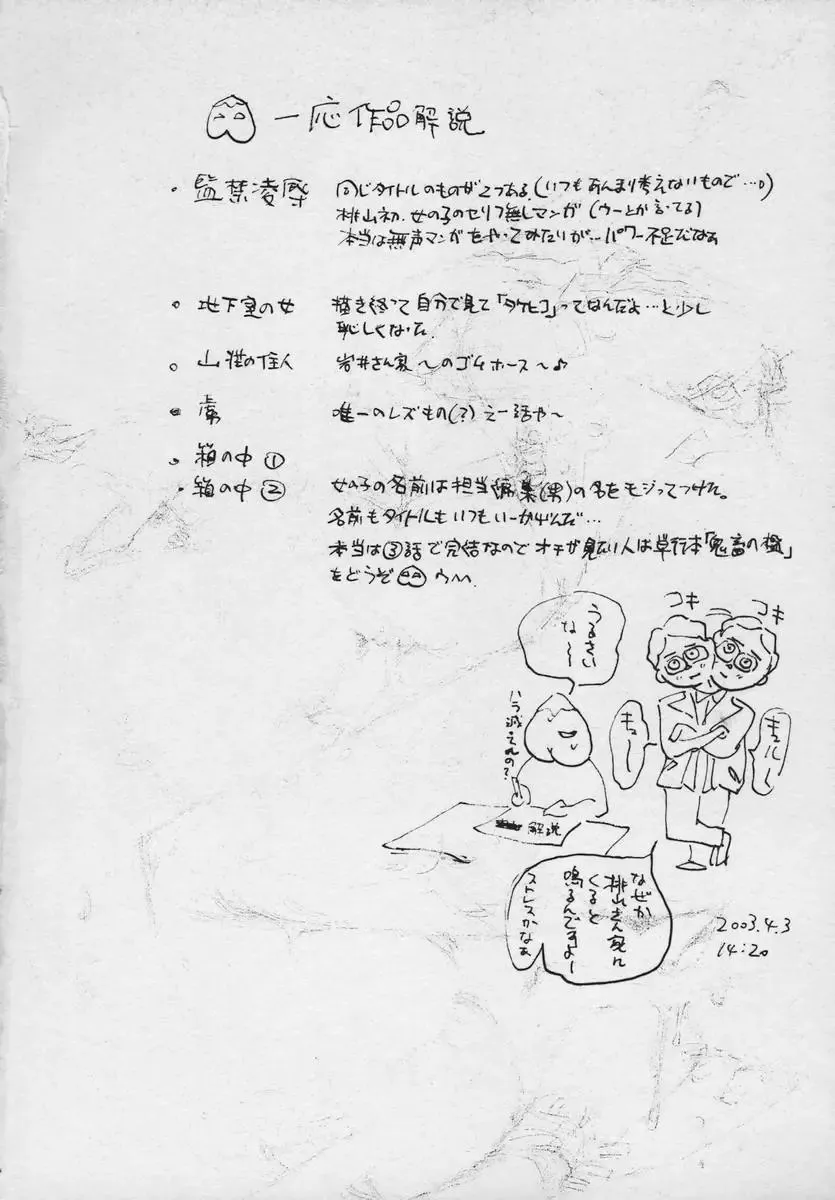 一応作品解説
・監禁凌辱
同じタイトルのものが2つある。(いつもあんまり考えないもので…。)
桃山初、女の子のセリフ無しマンガ(ウーとか言ってる)
本当は無声マンガをやってみたいが…パワー不足だなぁ
。地下室の女
描き終って自分で見て「タケヒコ」ってなんだよ…と少し
恥しくなった
。山荘の住人
岩井さん家〜のゴムホース〜♪
唯一のレズもの(?)えー話や〜
。箱の中①
・箱の中②
女の子の名前は担当編集(男)の名をモジってつけた。
名前もタイトルもいつもいーかげんだ…
本当は③話で完結なのでオチが見たい人は単行本「鬼畜の檻」
をどうぞ
うるさい
な〜〜
ハラ減ってんの?
解説
コキ
コキ
キュー
キュルル〜
なぜか
桃山さん家に
くると
鳴るんですよー
ストレスかなぁ
2003.4.3
14:20